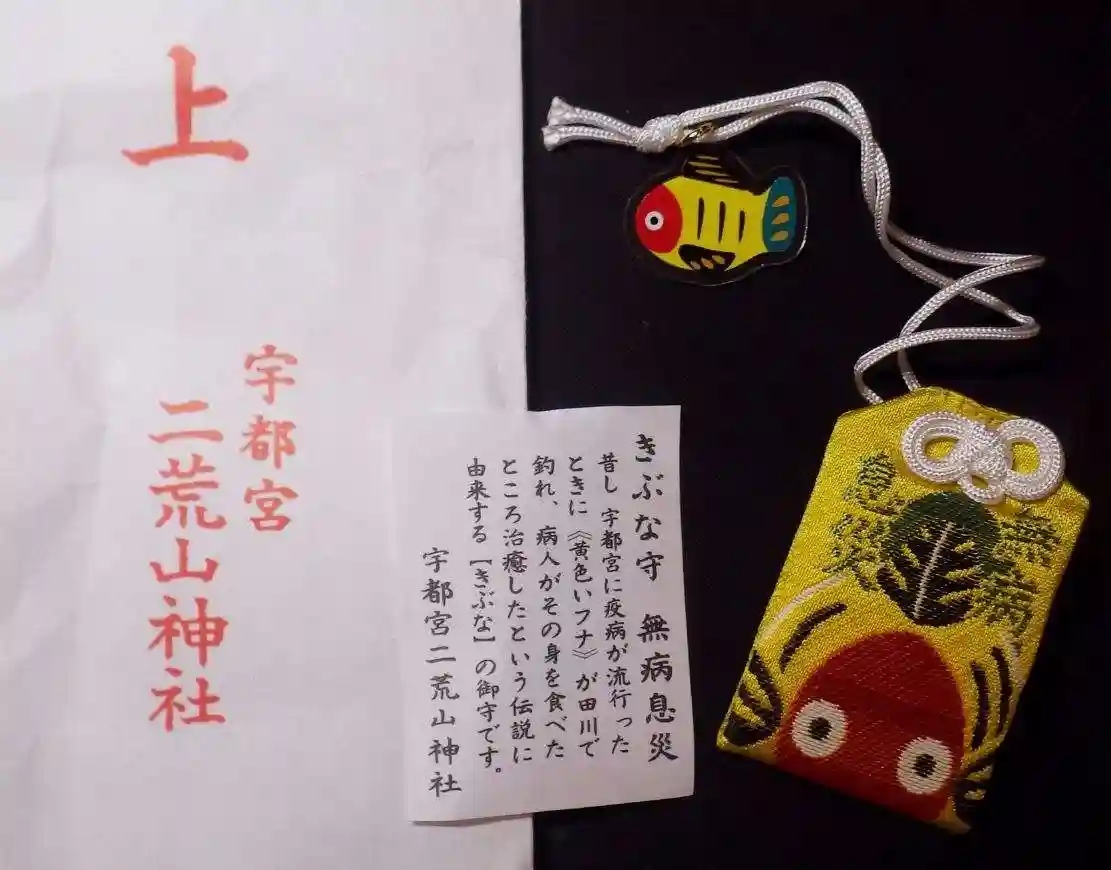 上
宇都宮
二荒山神社
きぶな守 無病息災
昔し 宇都宮に疫病が流行った
ときに《黄色いフナ》が田川で
釣れ、病人がその身を食べた
ところ治癒したという伝説に
由来する【きぶな】の御守です。
宇都宮二荒山神社
無病
息災